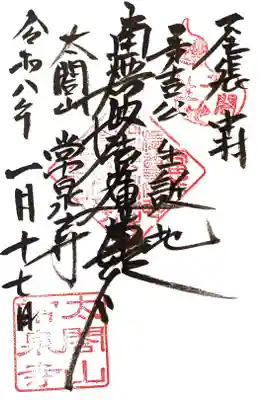 尾張中村
秀吉公 生誕地
南無妙法蓮華経
太閤山 常泉寺
令和八年 一月十七日
太閤山
常泉寺